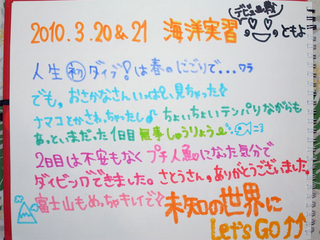 2010.3.20&21 海洋実習
デビュー戦
ともよ
人生初ダイブは春のにごりで...ワラ
でも、おさかなさんいっぱい見れちゃった
ナマコとかさわっちゃたし♪ちょいちょいテンパリながらも
あっというまだった1日目無事しゅうりょう
2日目は不安もなくプチ人魚になった気分で
ダイビングできました。さとうさん。ありがとうございました。
富士山もめっちゃキレイで
未知の世界に
Let's GO↑↑